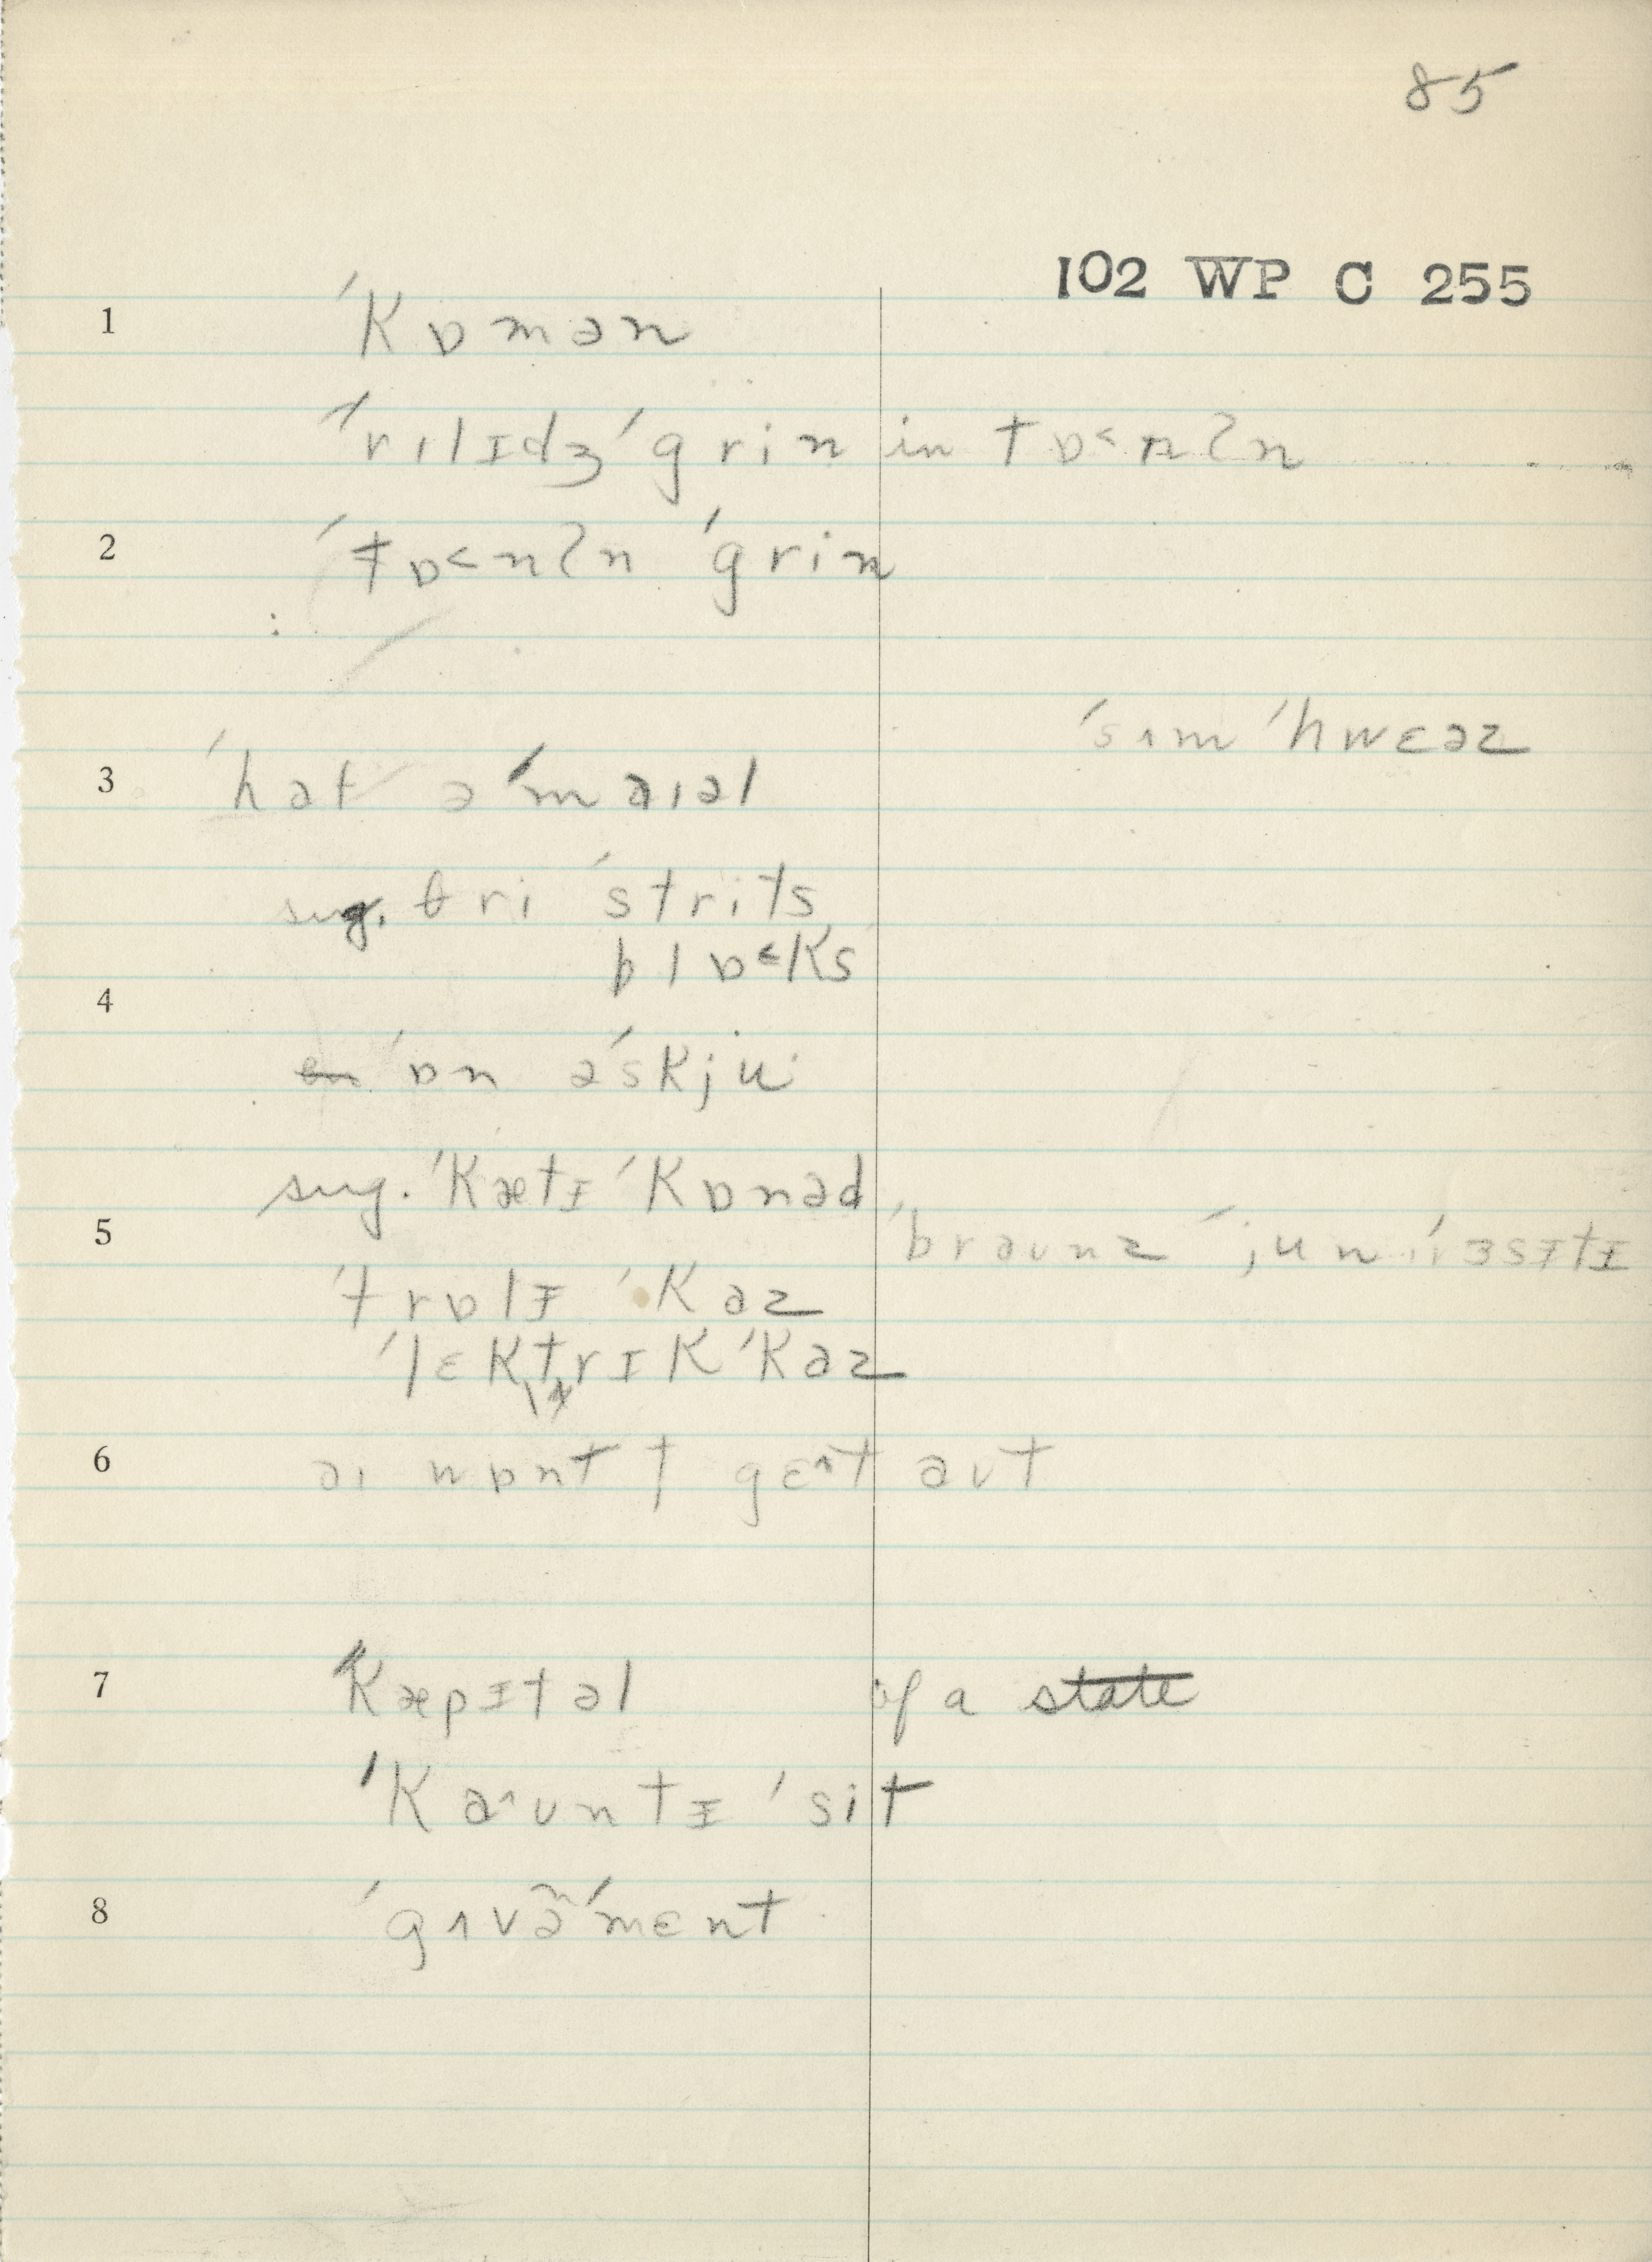 85
102 WP C 255
1 ˈkɒmən
ˈvɪlɪdʒ ˈgrin in tɒ˂nʔn
2 ˈtɒ˂nʔn ˈgrin
ˈsʌm ˈhwɛəz
3 ˈhat əˈmaɪəl
sug. θri ˈstrits
blɒ˂ks
4
ɒn əˈskju
sug. ˈkætɪ ˈkɒnəd
5 ˈbraʊnz
ˈtrɒlɪ ˈkaz
ˈlɛktrɪk ˈkaz
6 aɪ wɒnt t gɛ^t aʊt
7 ˈkæpɪtəl of a state
ˈka^ʊntɪ ˈsit
8 ˈgʌvə̃ˈmɛnt